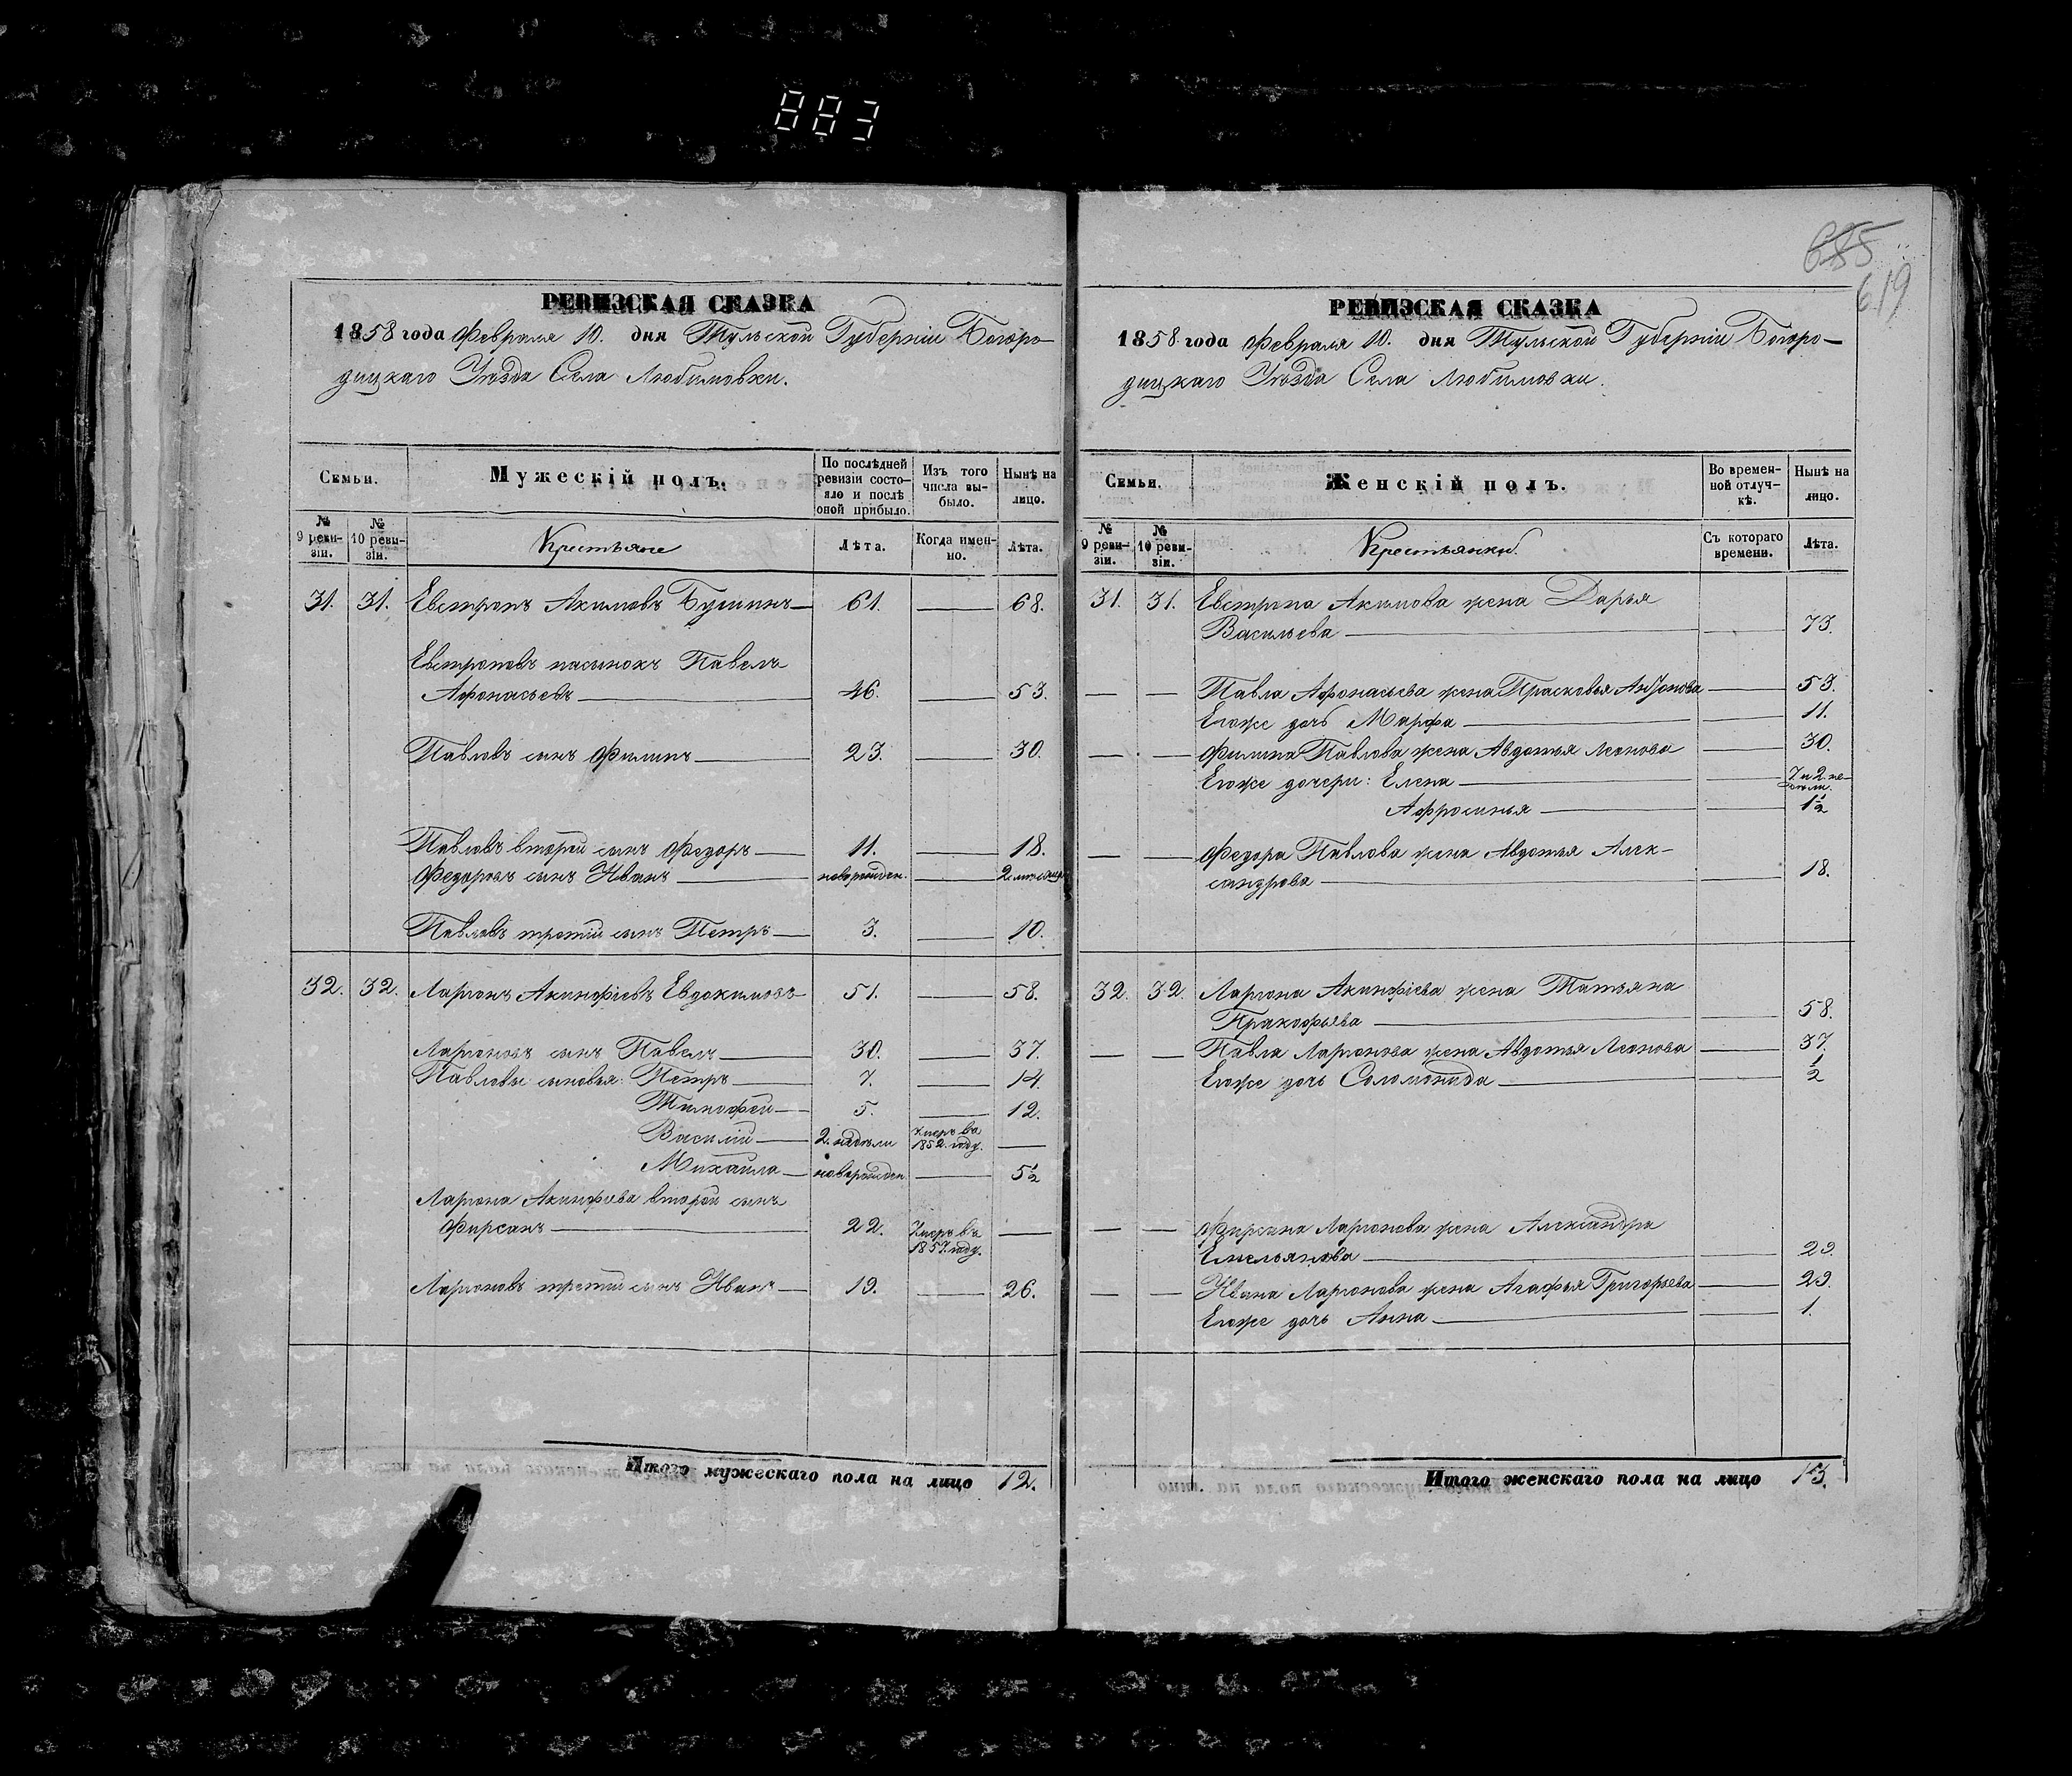 883
685
619
РЕВИЗСКАЯ СКАЗКА
1858 года Февраля 10. дня Тульской Губерніи Богоро-
дицкаго Уѣзда Села Любимовки.
Семьи.
Мужескій полъ.
По послѣдней ревизіи состояло и послѣ оной прибыло.
Изъ того числа выбыло.
Нынѣ на лицо.
№ 9 ревизіи.
№ 10 ревизіи.
Крестьяне
Лѣта.
Когда именно.
Лѣта.
31. 31. Евстропъ Акимовъ 61. 68.
Евстроповъ пасынокъ Павелъ
Афонасьевъ 46. 53.
Павловъ сынъ Филипъ 23. 30.
Павловъ второй сынъ Федоръ 11. 18.
Федоровъ сынъ Иванъ новорожден. 2 мѣсяца
Павловъ третій сынъ Петръ 3. 10.
32. 32. Ларіонъ Акинфіевъ Евдокимовъ 51. 58.
Ларіоновъ сынъ Павелъ 30. 37.
Павловы сыновья: Петръ 7. 14.
Тимофей 5. 12.
Василій 2. недѣли Умеръ въ 1852. году.
Михаила новорожден. 5½
Ларіона Акинфіева второй сынъ
Фирсанъ 22. Умеръ въ 1857. году.
Ларіоновъ третій сынъ Иванъ 19. 26.
Итого мужескаго пола на лицо 12.
РЕВИЗСКАЯ СКАЗКА
1858 года Февраля 10. дня Тульской Губерніи Богоро-
дицкаго Уѣзда Села Любимовки.
Семьи.
Женскій полъ.
Во временной отлучкѣ.
Нынѣ на лицо.
№ 9 ревизіи.
№ 10 ревизіи.
Крестьянки.
Съ котораго времени.
Лѣта.
31. 31. Евстропа Акимова жена Дарья
Васильева 73.
Павла Афонасьева жена Прасковья Антонова 53.
Егоже дочь Марфа 11.
Филипа Павлова жена Авдотья Леонова 30.
Егоже дочери: Елена 7. и 2. недѣли.
Афросинья 1½
Федора Павлова жена Авдотья Алек-
сандрова 18.
32. 32. Ларіона Акинфіева жена Татьяна
Пракофьева 58.
Павла Ларіонова жена Авдотья Леонова 37.
Егоже дочь Соломонида ½
Фирсана Ларіонова жена Александра
Емельянова 29.
Ивана Ларіонова жена Агафья Григорьева 29.
Егоже дочь Анна 1.
Итого женскаго пола на лицо 13.